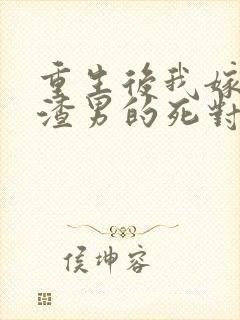 重生後我嫁
渣男的死對
侯坤容